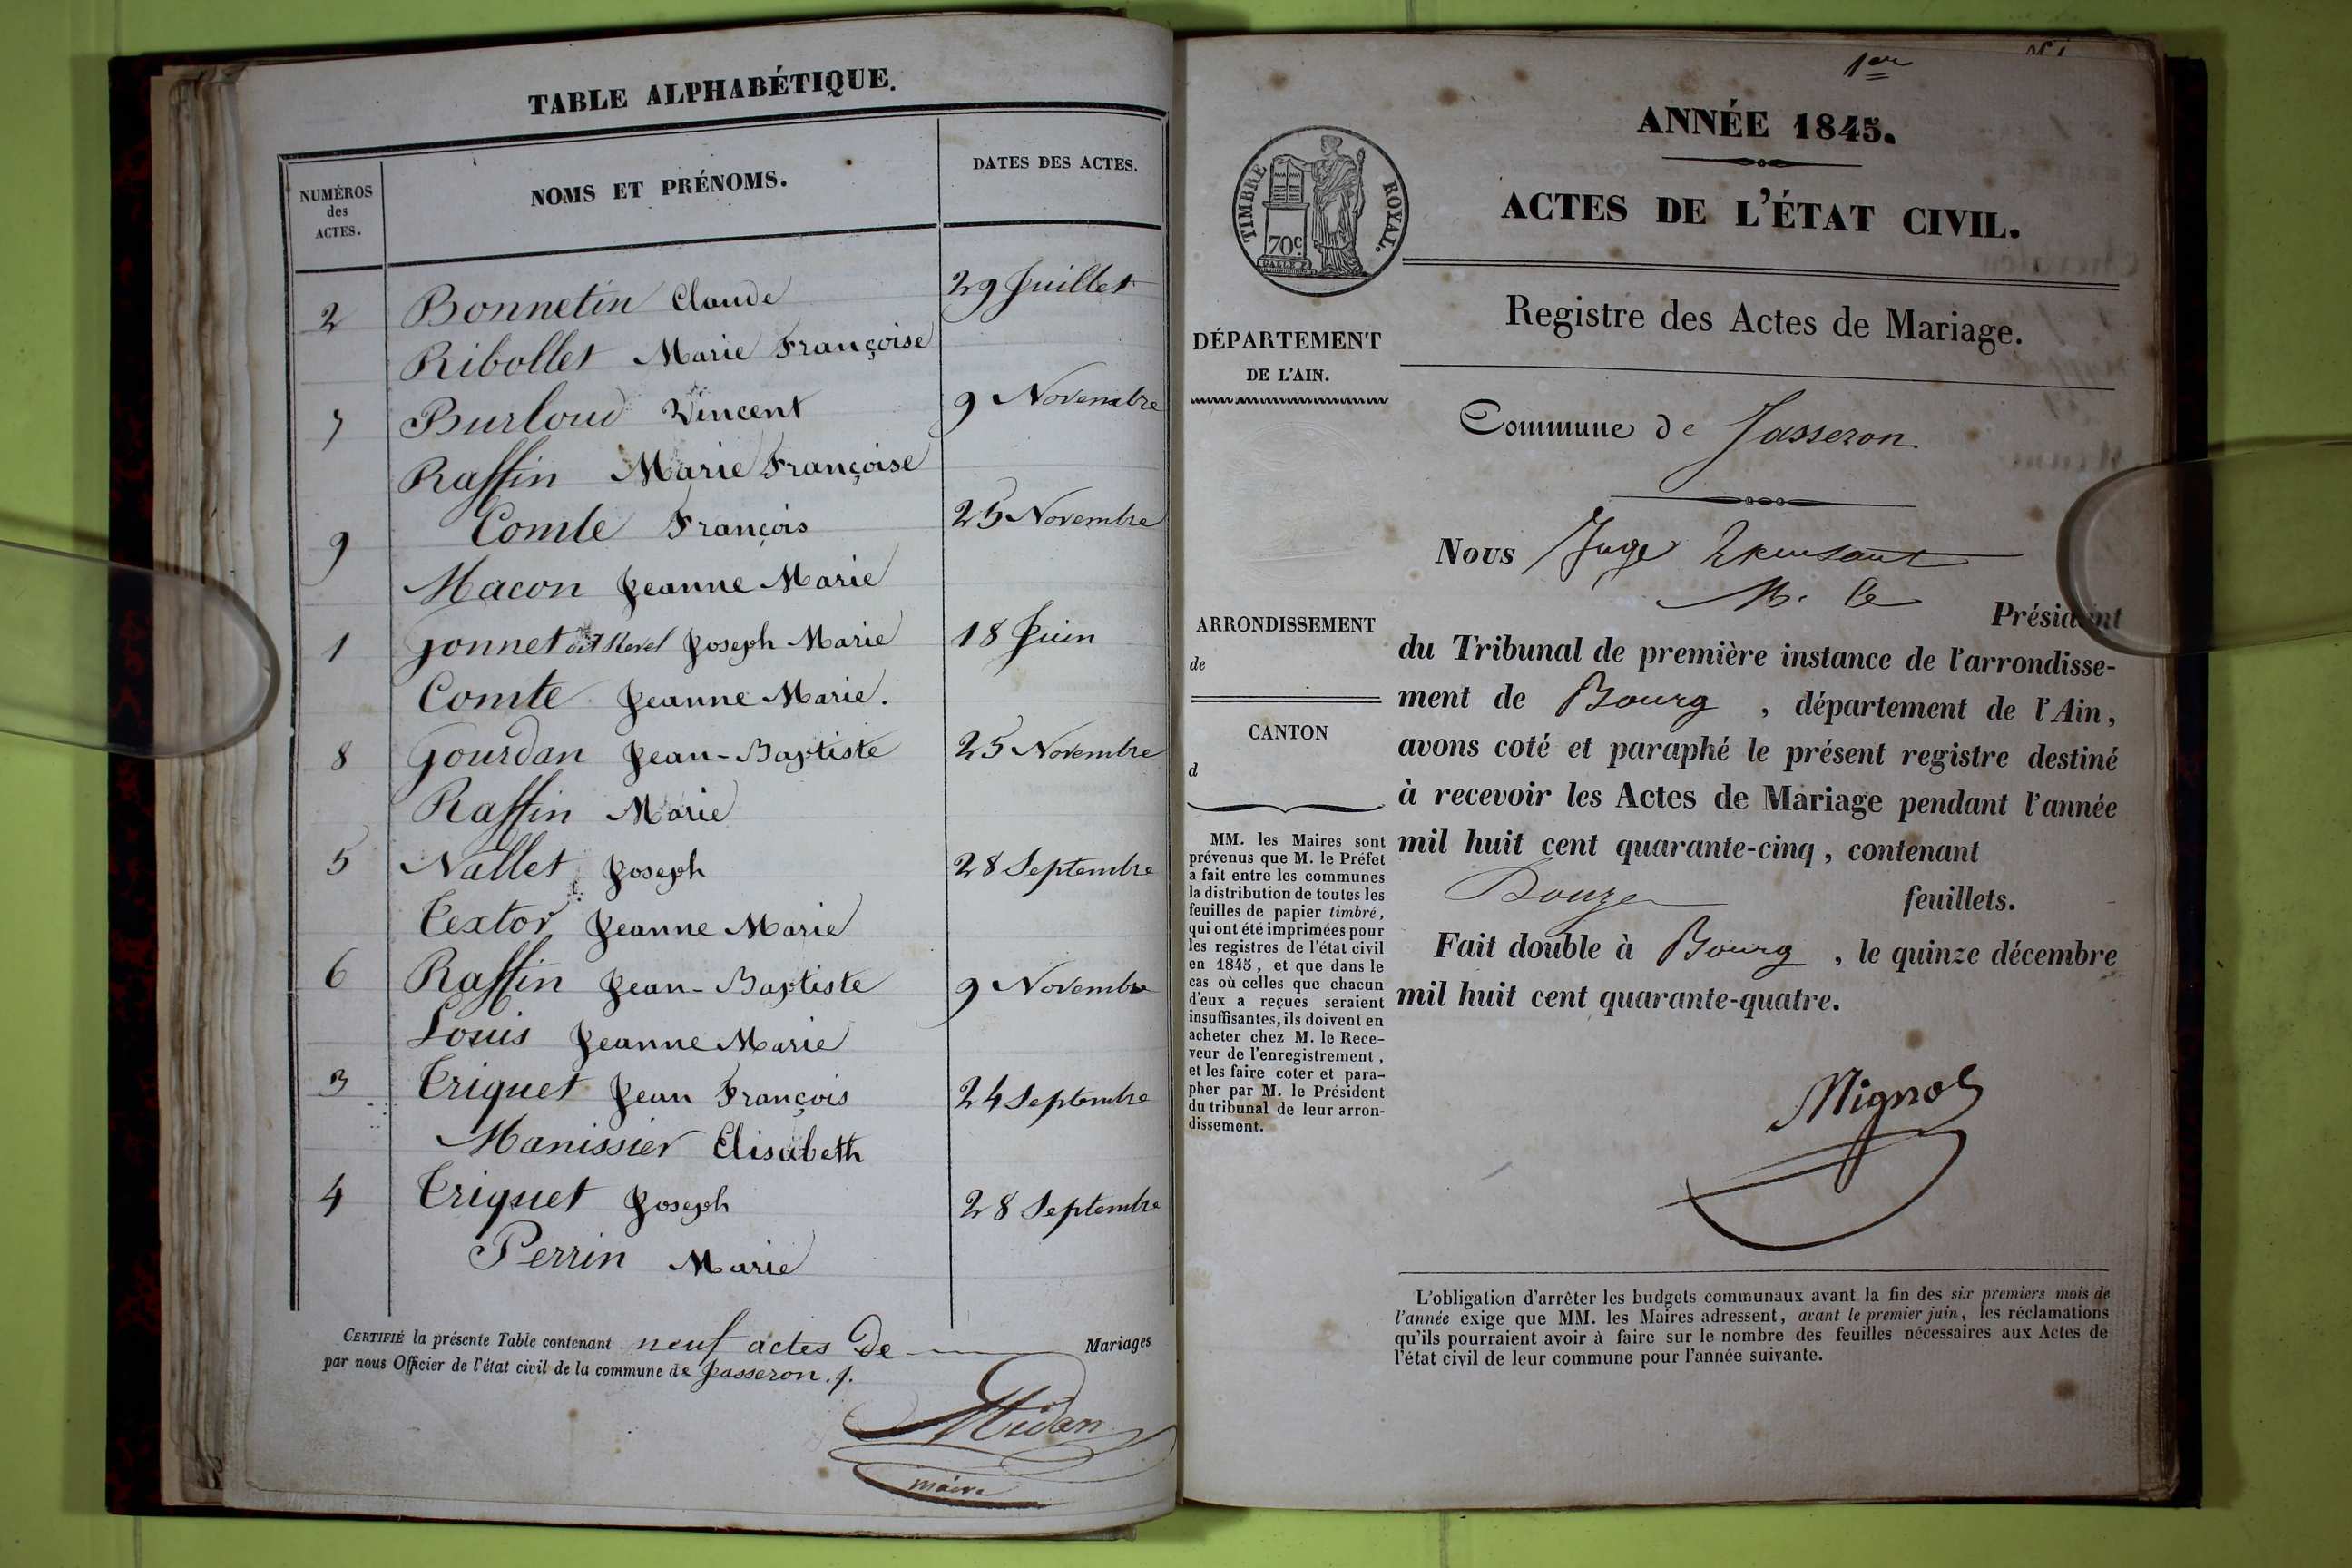 TABLE ALPHABÉTIQUE.
NUMÉROS
des
ACTES.
NOMS ET PRÉNOMS.
DATES DES ACTES.
2 Bonnetin Claude 29 Juillet
Ribollet Marie Françoise
7 Burloud Vincent 9 Novembre
Raffin Marie Françoise
9 Comte François 25 Novembre
Macon Jeanne Marie
1 Gonnet dit Revel Joseph Marie 18 Juin
Comte Jeanne Marie.
8 Gourdan Jean-Baptiste 25 Novembre
Raffin Marie
5 Nallet Joseph 28 Septembre
Textor Jeanne Marie
6 Raffin Jean-Baptiste 9 Novembre
Louis Jeanne Marie
3 Triquet Jean François 24 Septembre
Manissier Elisabeth
4 Triquet Joseph 28 Septembre
Perrin Marie
CERTIFIÉ la présente Table contenant neuf actes De Mariages
par nous Officier de l'état civil de la commune de Jasseron.
Midan
maire
1er
ANNÉE 1845.
ACTES DE L'ÉTAT CIVIL.
TIMBRE ROYAL.
70c
Registre des Actes de Mariage.
DÉPARTEMENT
DE L'AIN.
Commune de Jasseron
Nous Juge
M. le Président
ARRONDISSEMENT
de
CANTON
d
du Tribunal de première instance de l'arrondisse-
ment de Bourg , département de l'Ain,
avons coté et paraphé le présent registre destiné
à recevoir les Actes de Mariage pendant l'année
mil huit cent quarante-cinq, contenant
Douze feuillets.
Fait double à Bourg , le quinze décembre
mil huit cent quarante-quatre.
MM. les Maires sont
prévenus que M. le Préfet
a fait entre les communes
la distribution de toutes les
feuilles de papier timbré,
qui ont été imprimées pour
les registres de l'état civil
en 1845, et que dans le
cas où celles que chacun
d'eux a reçues seraient
insuffisantes, ils doivent en
acheter chez M. le Rece-
veur de l'enregistrement,
et les faire coter et para-
pher par M. le Président
du tribunal de leur arron-
dissement.
Mignot
L'obligation d'arrêter les budgets communaux avant la fin des six premiers mois de
l'année exige que MM. les Maires adressent, avant le premier juin, les réclamations
qu'ils pourraient avoir à faire sur le nombre des feuilles nécessaires aux Actes de
l'état civil de leur commune pour l'année suivante.